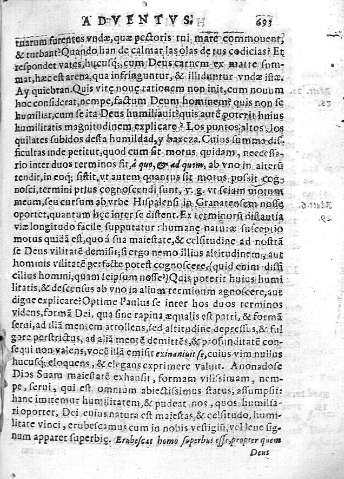 ADVENTVS. 693
tuarum furentes vndæ, quæ pectoris tui mare commouent,
& turbant? Quando han de calmar las olas de tus codicias? Et
respondet vates, hucusq́; cum Deus carnem ex matre sum-
mat, hæc est arena, qua infringuntur, & illiduntur vndæ istæ.
Ay quiebran. Quis vitę nouę rationem non init, cum nouum
hoc considerat, nempe, factum Deum hominem? quis non se
humiliat, cum se ita Deus humiliauit? quis aute poterit huius
humilitatis magnitudinem explicare? Los puntos altos, los
quilates subidos desta humildad, y baxeza. Cuius summa dif-
ficultas inde petitur, quod cum sit motus quidam, necessa-
rio inter duos terminos sit, à quo, & ad quem, ab vno in alterū
tendit, in eoq; sistit, vt autem quantus sit motus possit cog-
nosci, termini prius cognoscendi sunt, v. g. vt sciam motum
meum, seu cursum ab vrbe Hispalensi in Granatensem nosse
oportet, quantum hęc inter se distent. Ex terminorū distātia
viæ longitudo facile supputatur: humanę naturæ susceptio
motus quidā est, quo á sua maiestate, & celsitudine ad nostrā
se Deus vilitatē demisit; si ergo nemo illius altitudinem, aut
hominis vilitatē perfecte potest cognoscere, (quid enim diffi
cilius homini, quam seipsum nosse?) Quis poterit huius humi
litatis, & descensus ab vno in alium terminum agnoscere, aut
digne explicare? Optime Paulus se inter hos duos terminos
videns, formā Dei, qua sine rapina æqualis est patri, & formā
serui, ad illā mentem atrollens, sed altitudine depressus, & ful
gore perstrictus, ad aliā mentē demitēs, & profunditatē con-
sequi non valens, vocē illā emisit exinaniuit se, cuius vim nullus
hucusq; eloquens, & elegans exprimere valuit. Anonadose
Dios Suam maiestatē exhausit, formam vilissimam, nem-
pe, serui, qui est omnium abiectissimus status, assumpsit:
hanc imitemur humilitatem, & pudeat nos, quos humilia-
ri oportet, Dei cuius natura est maiestas, & celsitudo, humi-
litate vinci, erubescamus cum in nobis vestigiū, vel leue sig-
num apparet superbię. Erubescat homo superbus esse, propter quem
Deus